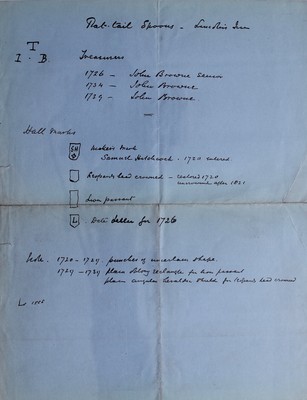 Rat-tail Spoons - Lincoln's Inn
T
I · B Treasurers
1726 - John Browne Senior
1734 - John Browne
1739 - John Browne
Hall Marks
SH Maker's mark
Samuel Hitchcock - 1720 entered
Leopard's head crowned - restored 1720
uncrowned after 1821
Lion passant
L Date letter for 1726
Note. 1720-1729. punches of uncertain shape.
1729-1739 plain oblong rectangle for lion passant
plain angular escutcheon shield for leopard's head crowned
L